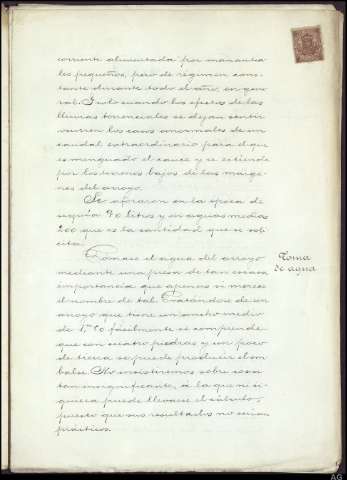 corriente alimentada por manantia
les pequeños, pero de régimen cons-
tante durante todo el año, en gene
ral. Solo cuando los efectos de las
lluvias torrenciales se dejan sentir
ocurren los casos anormales de un
caudal extraordinario para el que
es menguado el cauce y se extiende
por los terrenos bajos de las márge-
nes del arroyo.
Se aforaron en la época de
sequía 90 litros y en aguas medias
200 que es la cantidad que se soli
cita.
Tómase el agua del arroyo
mediante una presa de tan escasa
importancia que apenas si merece
el nombre de tal. Tratándose de un
arroyo que tiene un ancho medio
de 1,m50 fácilmente se comprende
que con cuatro piedras y un poco
de tierra se puede producir el em-
balse. No insistiremos sobre cosa
tan insignificante, á la que ni si-
quiera puede llevarse el cálculo,
puesto que sus resultados no serian
prácticos.
Toma
de agua
AG